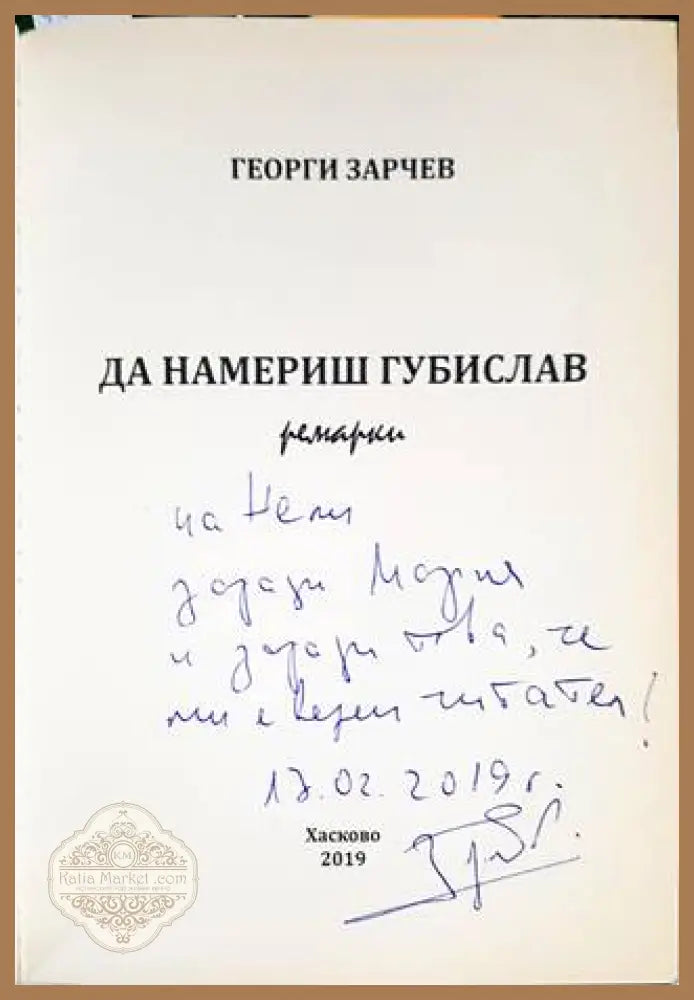 ГЕОРГИ ЗАРЧЕВ
ДА НАМЕРИШ ГУБИСЛАВ
ремарки
на Нели
заради Мария
и заради това, че
ми е верен читател!
17.02.2019 г.
Хасково
2019
KM
Katia Market .com